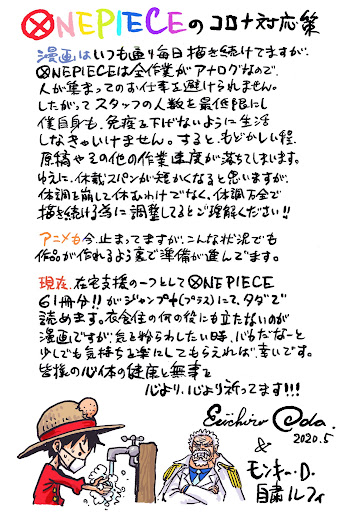 ONEPIECEのコロナ対応策
漫画はいつも通り毎日描き続けてますが、
ONEPIECEは全作業がアナログなので、
人が集まってのお仕事を避けられません。
したがってスタッフの人数を最低限にし
僕自身も、免疫を下げないように生活
しなきゃいけません。すると、もどかしい程、
原稿やその他の作業速度が落ちてしまいます。
ゆえに、休載スパンが短かくなると思いますが、
体調を崩して休むわけでなく、体調万全で
描き続ける為に調整してるとご理解ください!!
アニメも今、止まってますが、こんな状況でも
作品が作れるよう裏で準備が進んでます。
現在、在宅支援の一つとしてONEPIECE
61冊分!!がジャンプ+(プラス)にて、タダで
読めます。衣食住の何の役にも立たないのが
漫画ですが気を紛らわしたい時、バカだなーと
少しでも気持ちを楽にしてもらえれば、幸いです。
皆様の心体の健康と無事を
心より、心より祈ってます!!!
Eiichiro Oda.
2020.5
&
モンキー・D・
自粛ルフィ